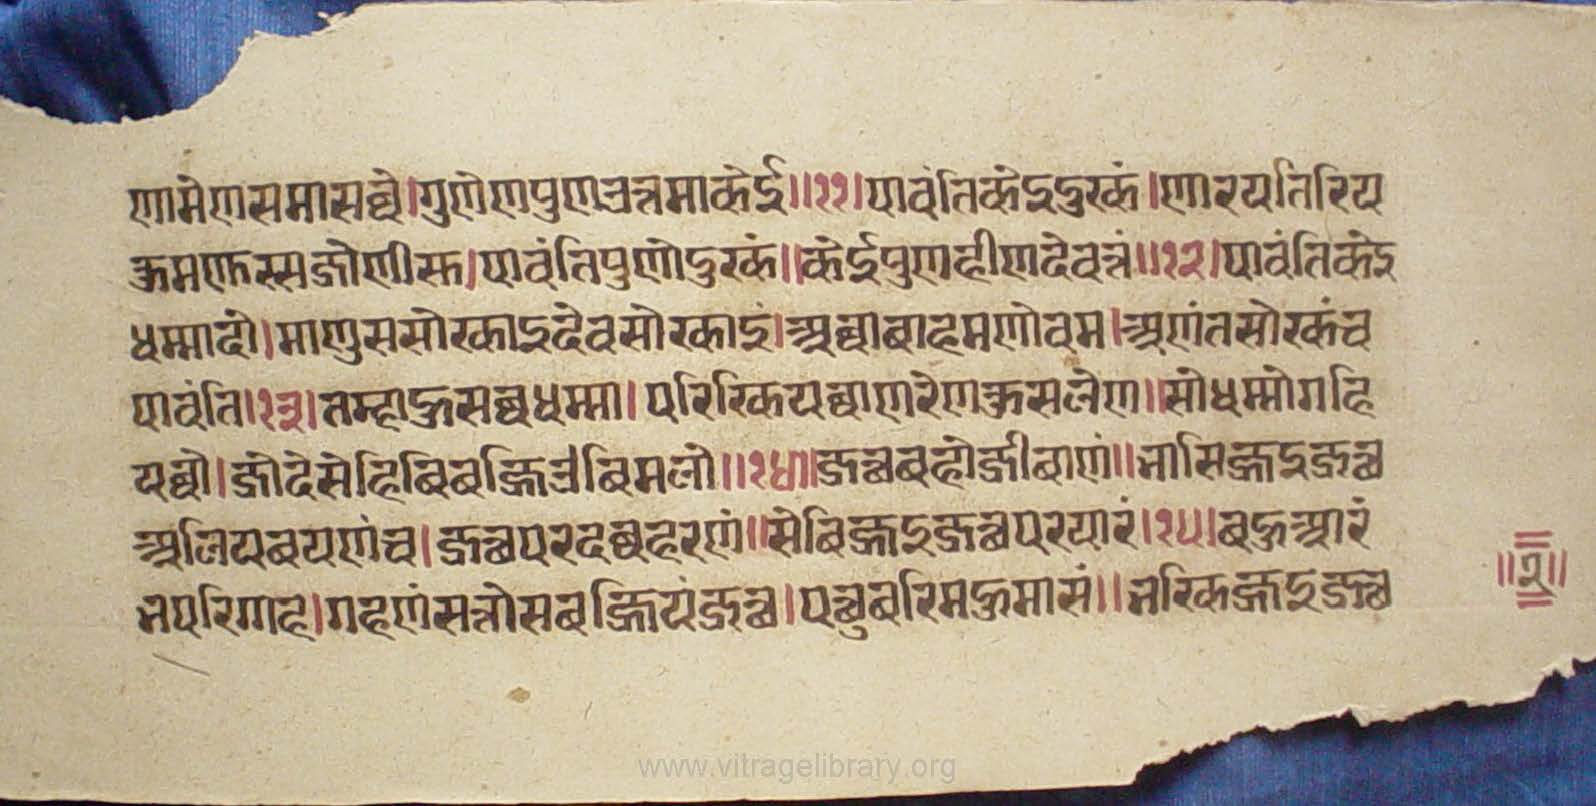 णामेणसमासव्वे।गुणेणपुणउत्तमाकेई॥११।पावंतिकेइदुरकं।णारयतिरिय
कुमणुस्सजोणीसु।पावंतिपुणोदुरकं॥केईपुणहीणदेवत्तं॥१२।पावंतिकेइ
धम्मादो।माणुससोरकाइदेवसोरकाइं।अव्वाबाहमणोवम।अणंतसोरकंच
पावंति।१३।तम्हाहुसव्वधम्मा।परिरिकयव्वाणरेणकुसलेण॥सोधम्मोगहि
यव्वो।जोदेसेहिविवज्जिउविमलो॥१४॥जत्थवहोजीवाणं॥भासिज्जइजत्थ
अलियवयणंच।जत्थपरदव्वहरणं॥सेविज्जइजत्थपरयारं।१५।बहुआरं
भपरिगाह।गहणंसत्तोसवज्जियंजत्थ।पंचुबरिमहुमासं॥भरिकज्जइजत्थ
॥२॥
www.vitragelibrary.org